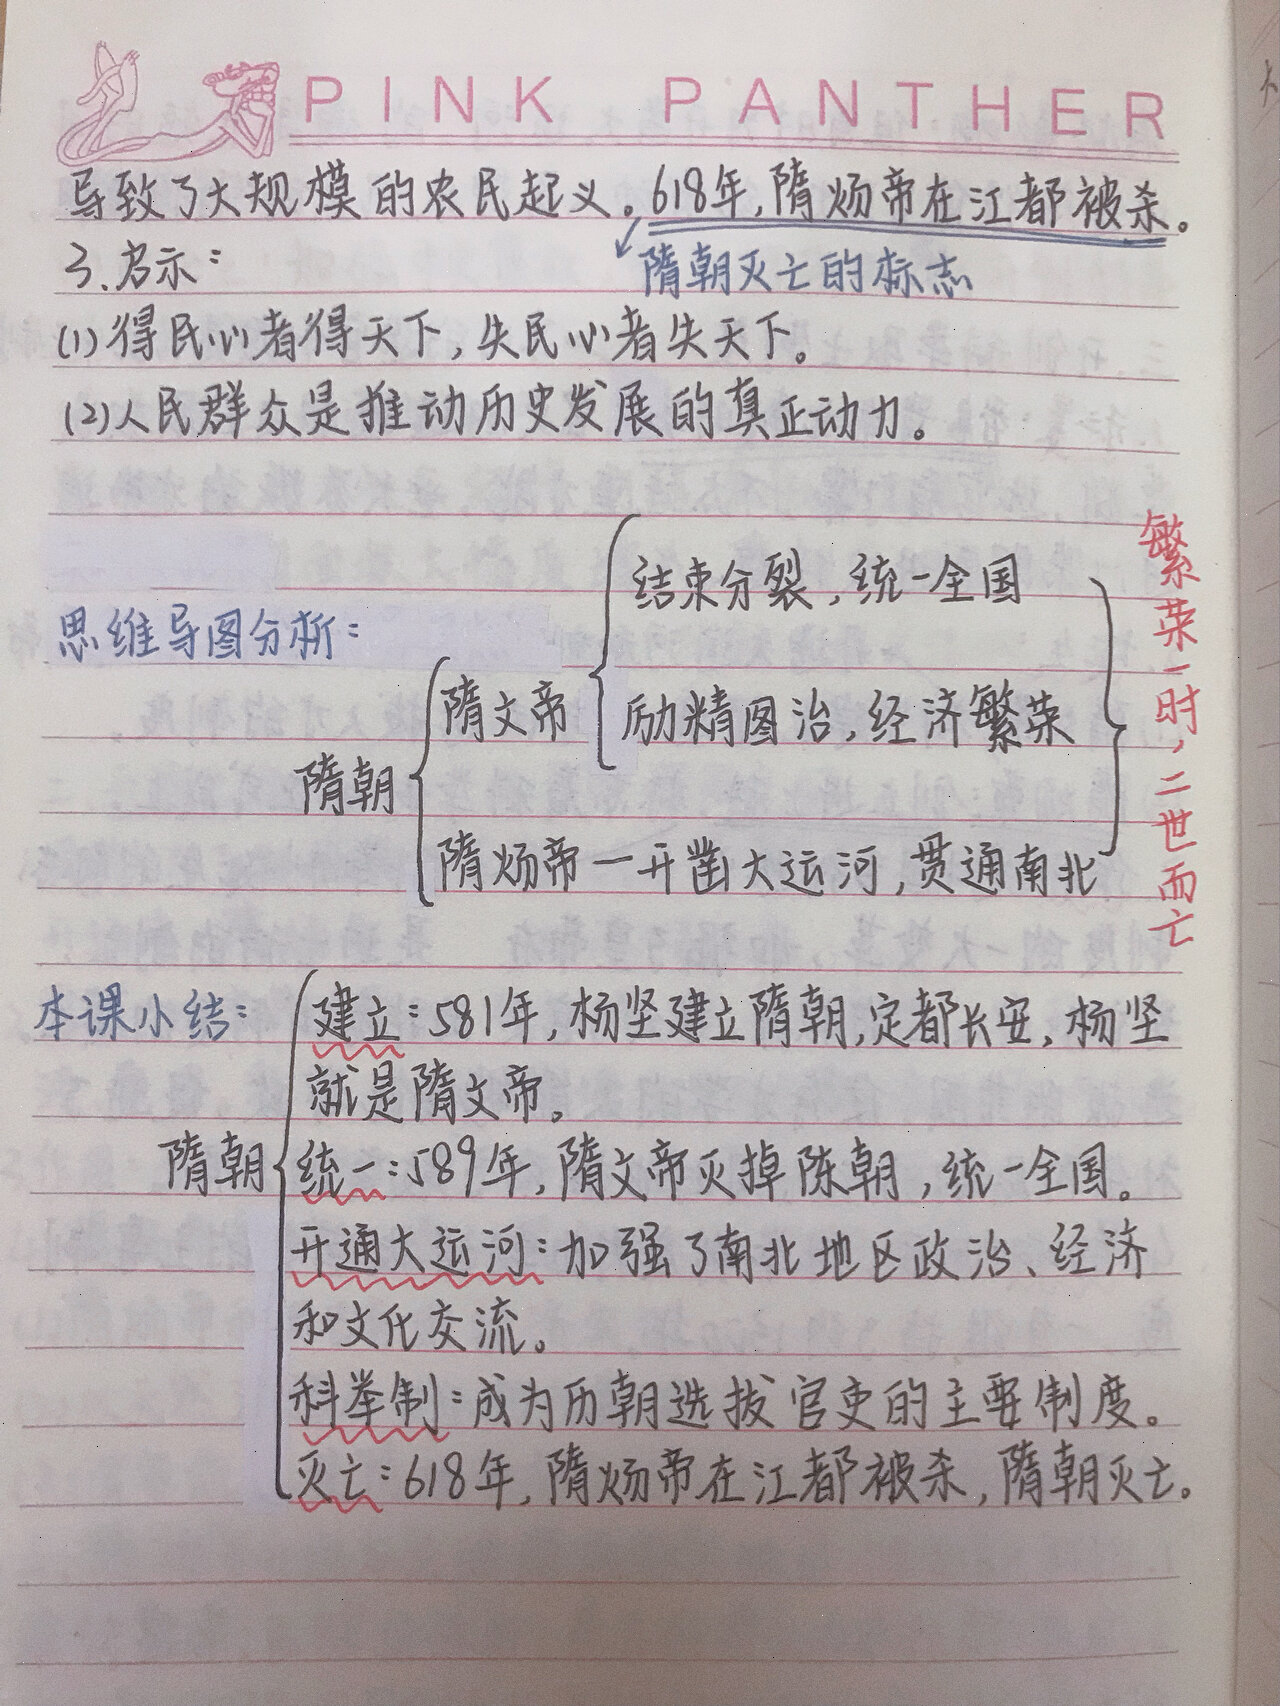 PINK PANTHER
导致了大规模的农民起义。618年,隋炀帝在江都被杀。
3.启示:
隋朝灭亡的标志
(1)得民心者得天下,失民心者失天下。
(2)人民群众是推动历史发展的真正动力。
思维导图分析:
结束分裂,统一全国
隋文帝
励精图治,经济繁荣
隋朝
隋炀帝一开凿大运河,贯通南北
繁荣一时,二世而亡
本课小结:
建立:581年,杨坚建立隋朝,定都长安,杨坚
就是隋文帝。
隋朝
统一:589年,隋文帝灭掉陈朝,统一全国。
开通大运河:加强了南北地区政治、经济
和文化交流。
科举制:成为历朝选拔官吏的主要制度。
灭亡:618年,隋炀帝在江都被杀,隋朝灭亡。